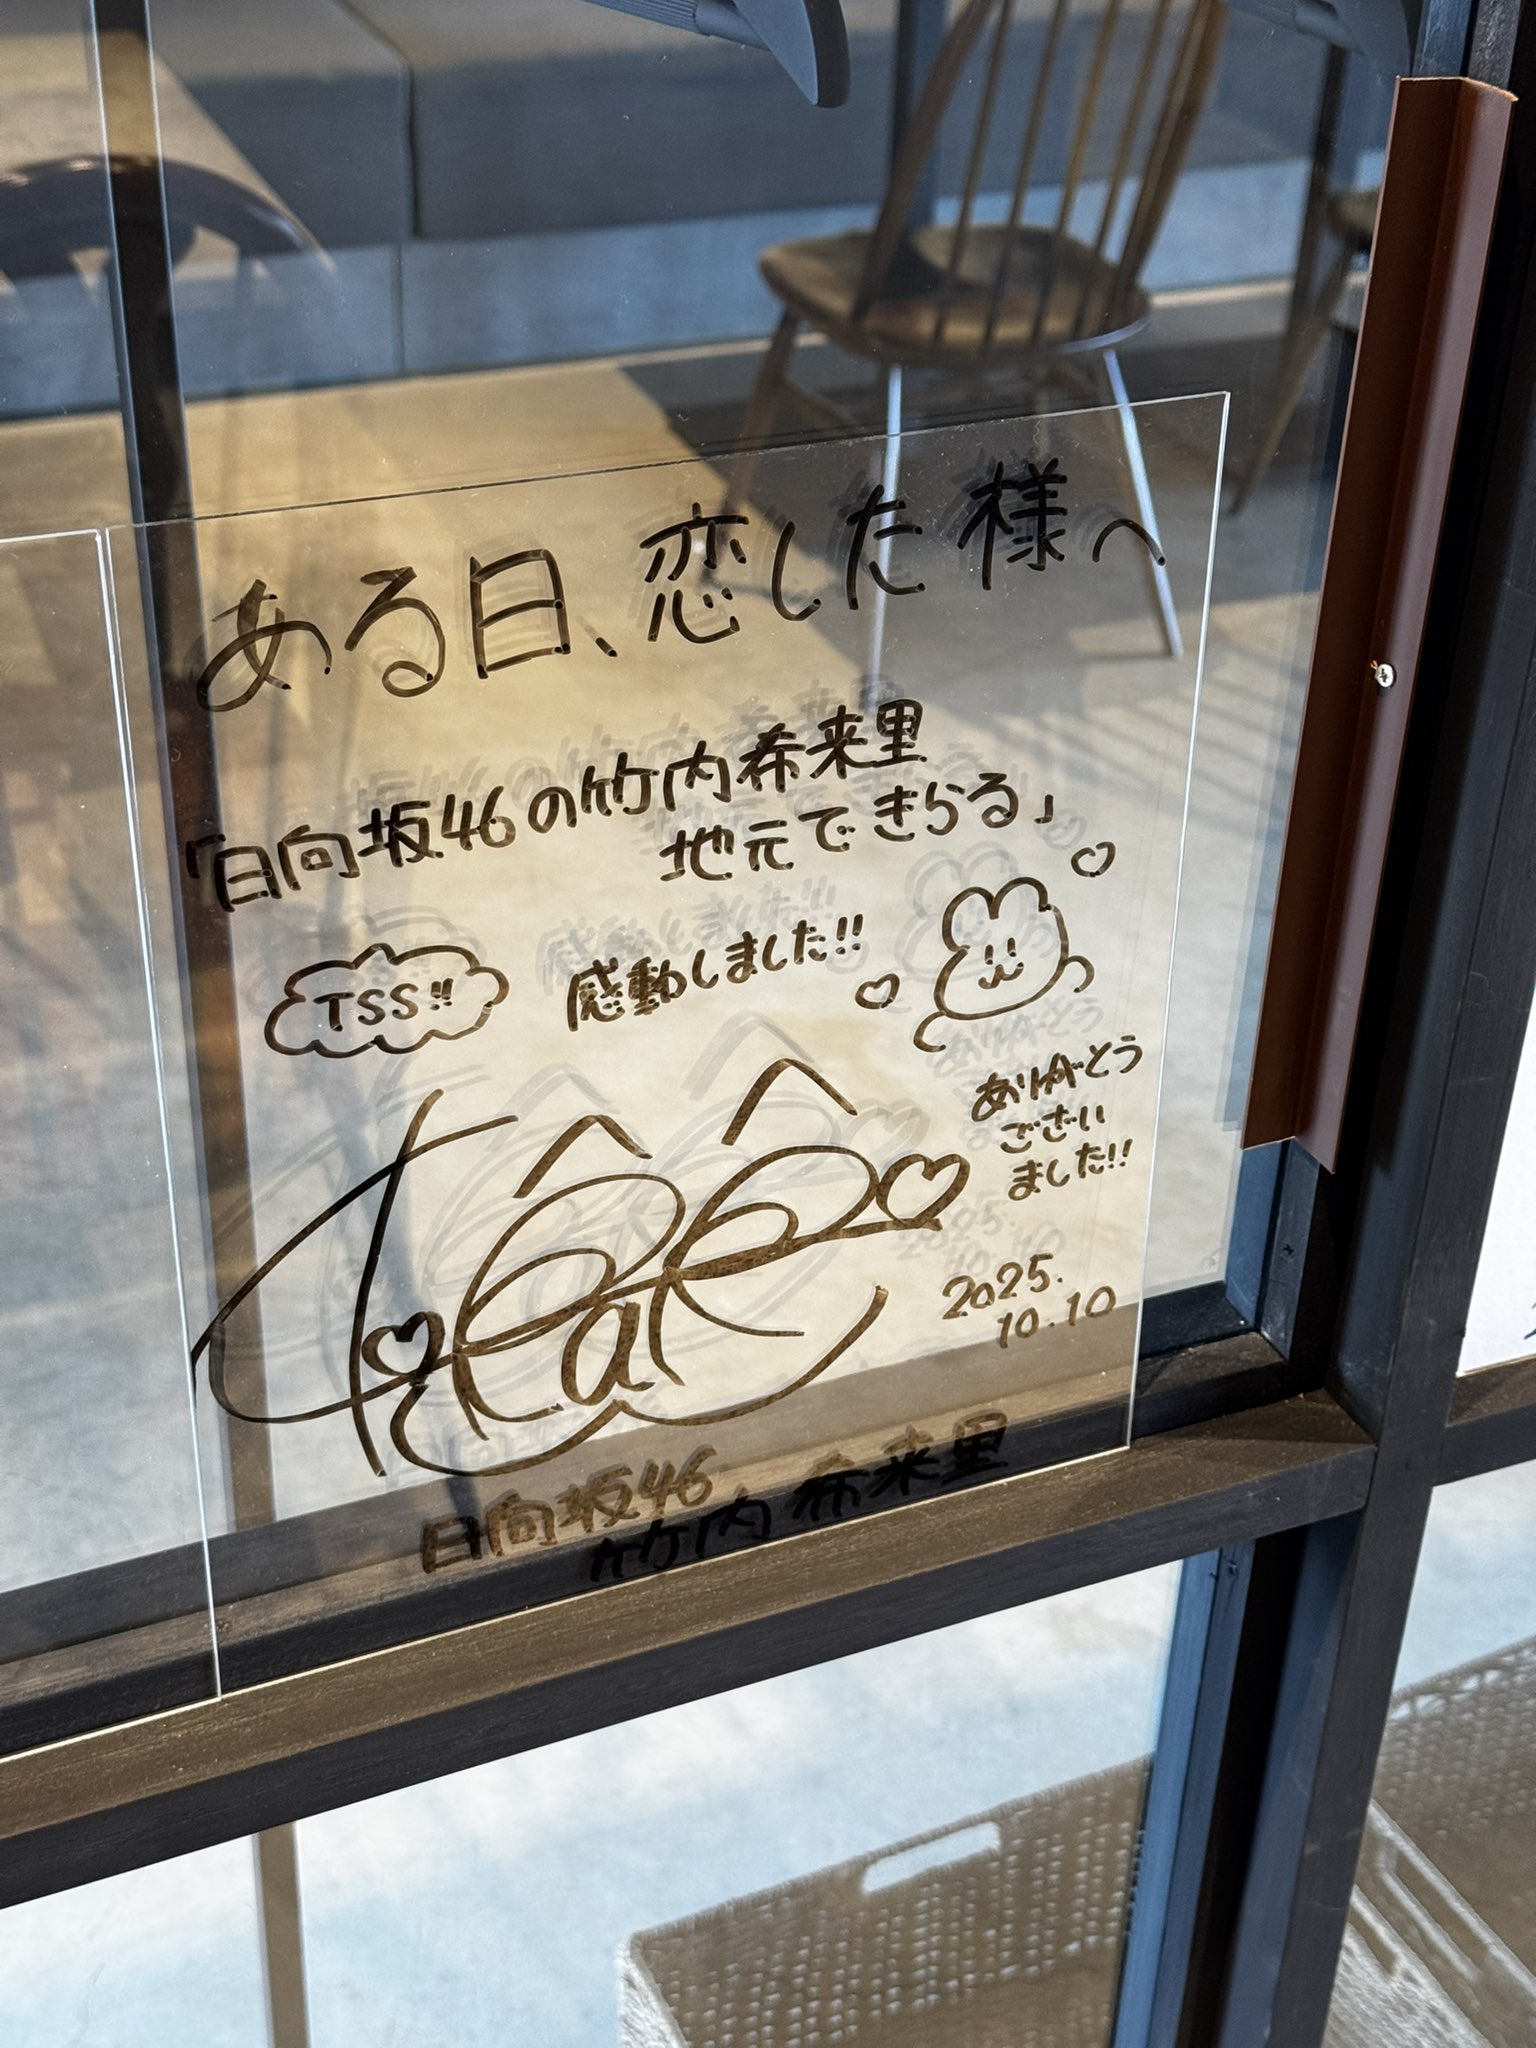 ある日、恋した様へ
「日向坂46の竹内希来里
地元できらる」
TSS!!
感動しました!!
ありがとう
ござい
ました!!
2025.
10.10
日向坂46
竹内希来里